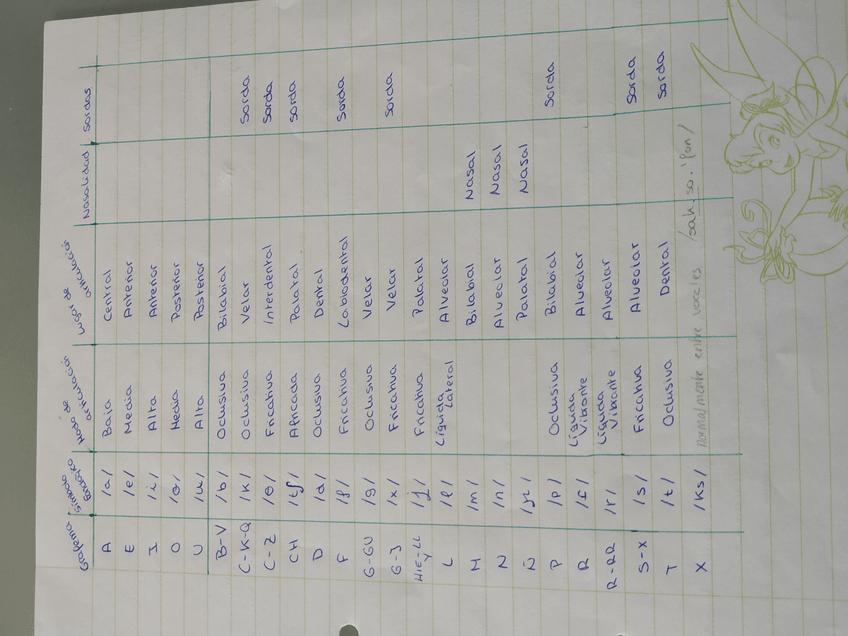 Grafema Símbolo fonológico Modo de articulación Lugar de articulación Nasalidad Sordas
A /a/ Baja Central
E /e/ Media Anterior
I /i/ Alta Anterior
O /o/ Media Posterior
U /u/ Alta Posterior
B-V /b/ Oclusiva Bilabial
C-K-Q /k/ Oclusiva Velar Sorda
C-Z /θ/ Fricativa Interdental Sorda
CH /tʃ/ Africada Palatal Sorda
D /d/ Oclusiva Dental
F /f/ Fricativa Labiodental Sorda
G-GU /g/ Oclusiva Velar
G-J /x/ Fricativa Velar Sorda
HIE-LL Y /ʝ/ Fricativa Palatal
L /l/ Líquida Lateral Alveolar
M /m/ Bilabial Nasal
N /n/ Alveolar Nasal
Ñ /ɲ/ Palatal Nasal
P /p/ Oclusiva Bilabial Sorda
R /ɾ/ Líquida Vibrante Alveolar
R-RR /r/ Líquida Vibrante Alveolar
S-X /s/ Fricativa Alveolar Sorda
T /t/ Oclusiva Dental Sorda
X /ks/ Normalmente entre vocales